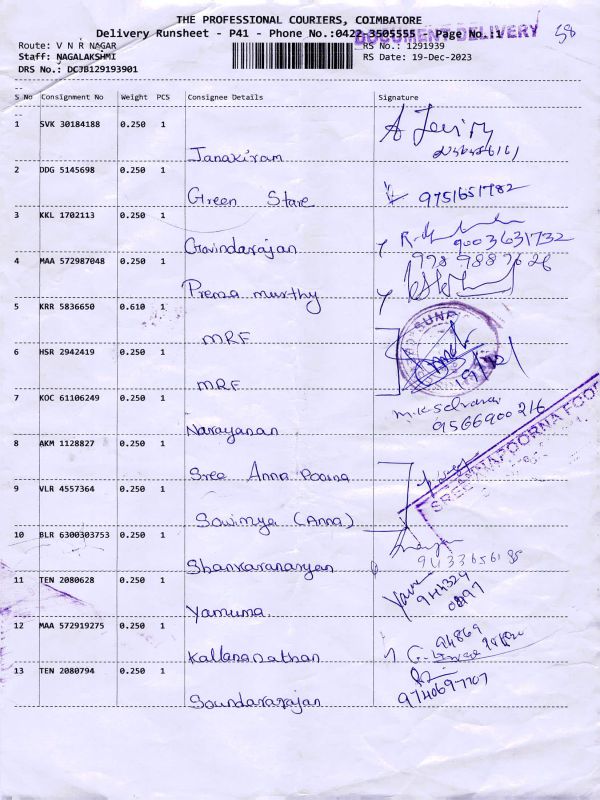 THE PROFESSIONAL COURIERS, COIMBATORE
Delivery Runsheet - P41 - Phone No.:0422-3505555 Page No.:1
DOCUMENT DELIVERY
58
Route: V N R NAGAR
RS No.: 1291939
Staff: NAGALAKSHMI
RS Date: 19-Dec-2023
DRS No.: DCJB129193901
S No Consignment No Weight PCS Consignee Details Signature
1 SVK 30184188 0.250 1
Janakiram
2 DDG 5145698 0.250 1
9751651782
Green Stare
3 KKL 1702113 0.250 1
9003631732
Govindarajan
4 MAA 572987048 0.250 1
Prema murthy
5 KRR 5836650 0.610 1
MRF
6 HSR 2942419 0.250 1
MRF
7 KOC 61106249 0.250 1
9566900216
Narayanan
8 AKM 1128827 0.250 1
Sree Anna Poorna
SREE ANNAPOORNA FOOD
9 VLR 4557364 0.250 1
Sowmya (Anna)
10 BLR 6300303753 0.250 1
Shankaranarayan
11 TEN 2080628 0.250 1
Yamuna
12 MAA 572919275 0.250 1
Kallananathan
13 TEN 2080794 0.250 1
Soundararajan